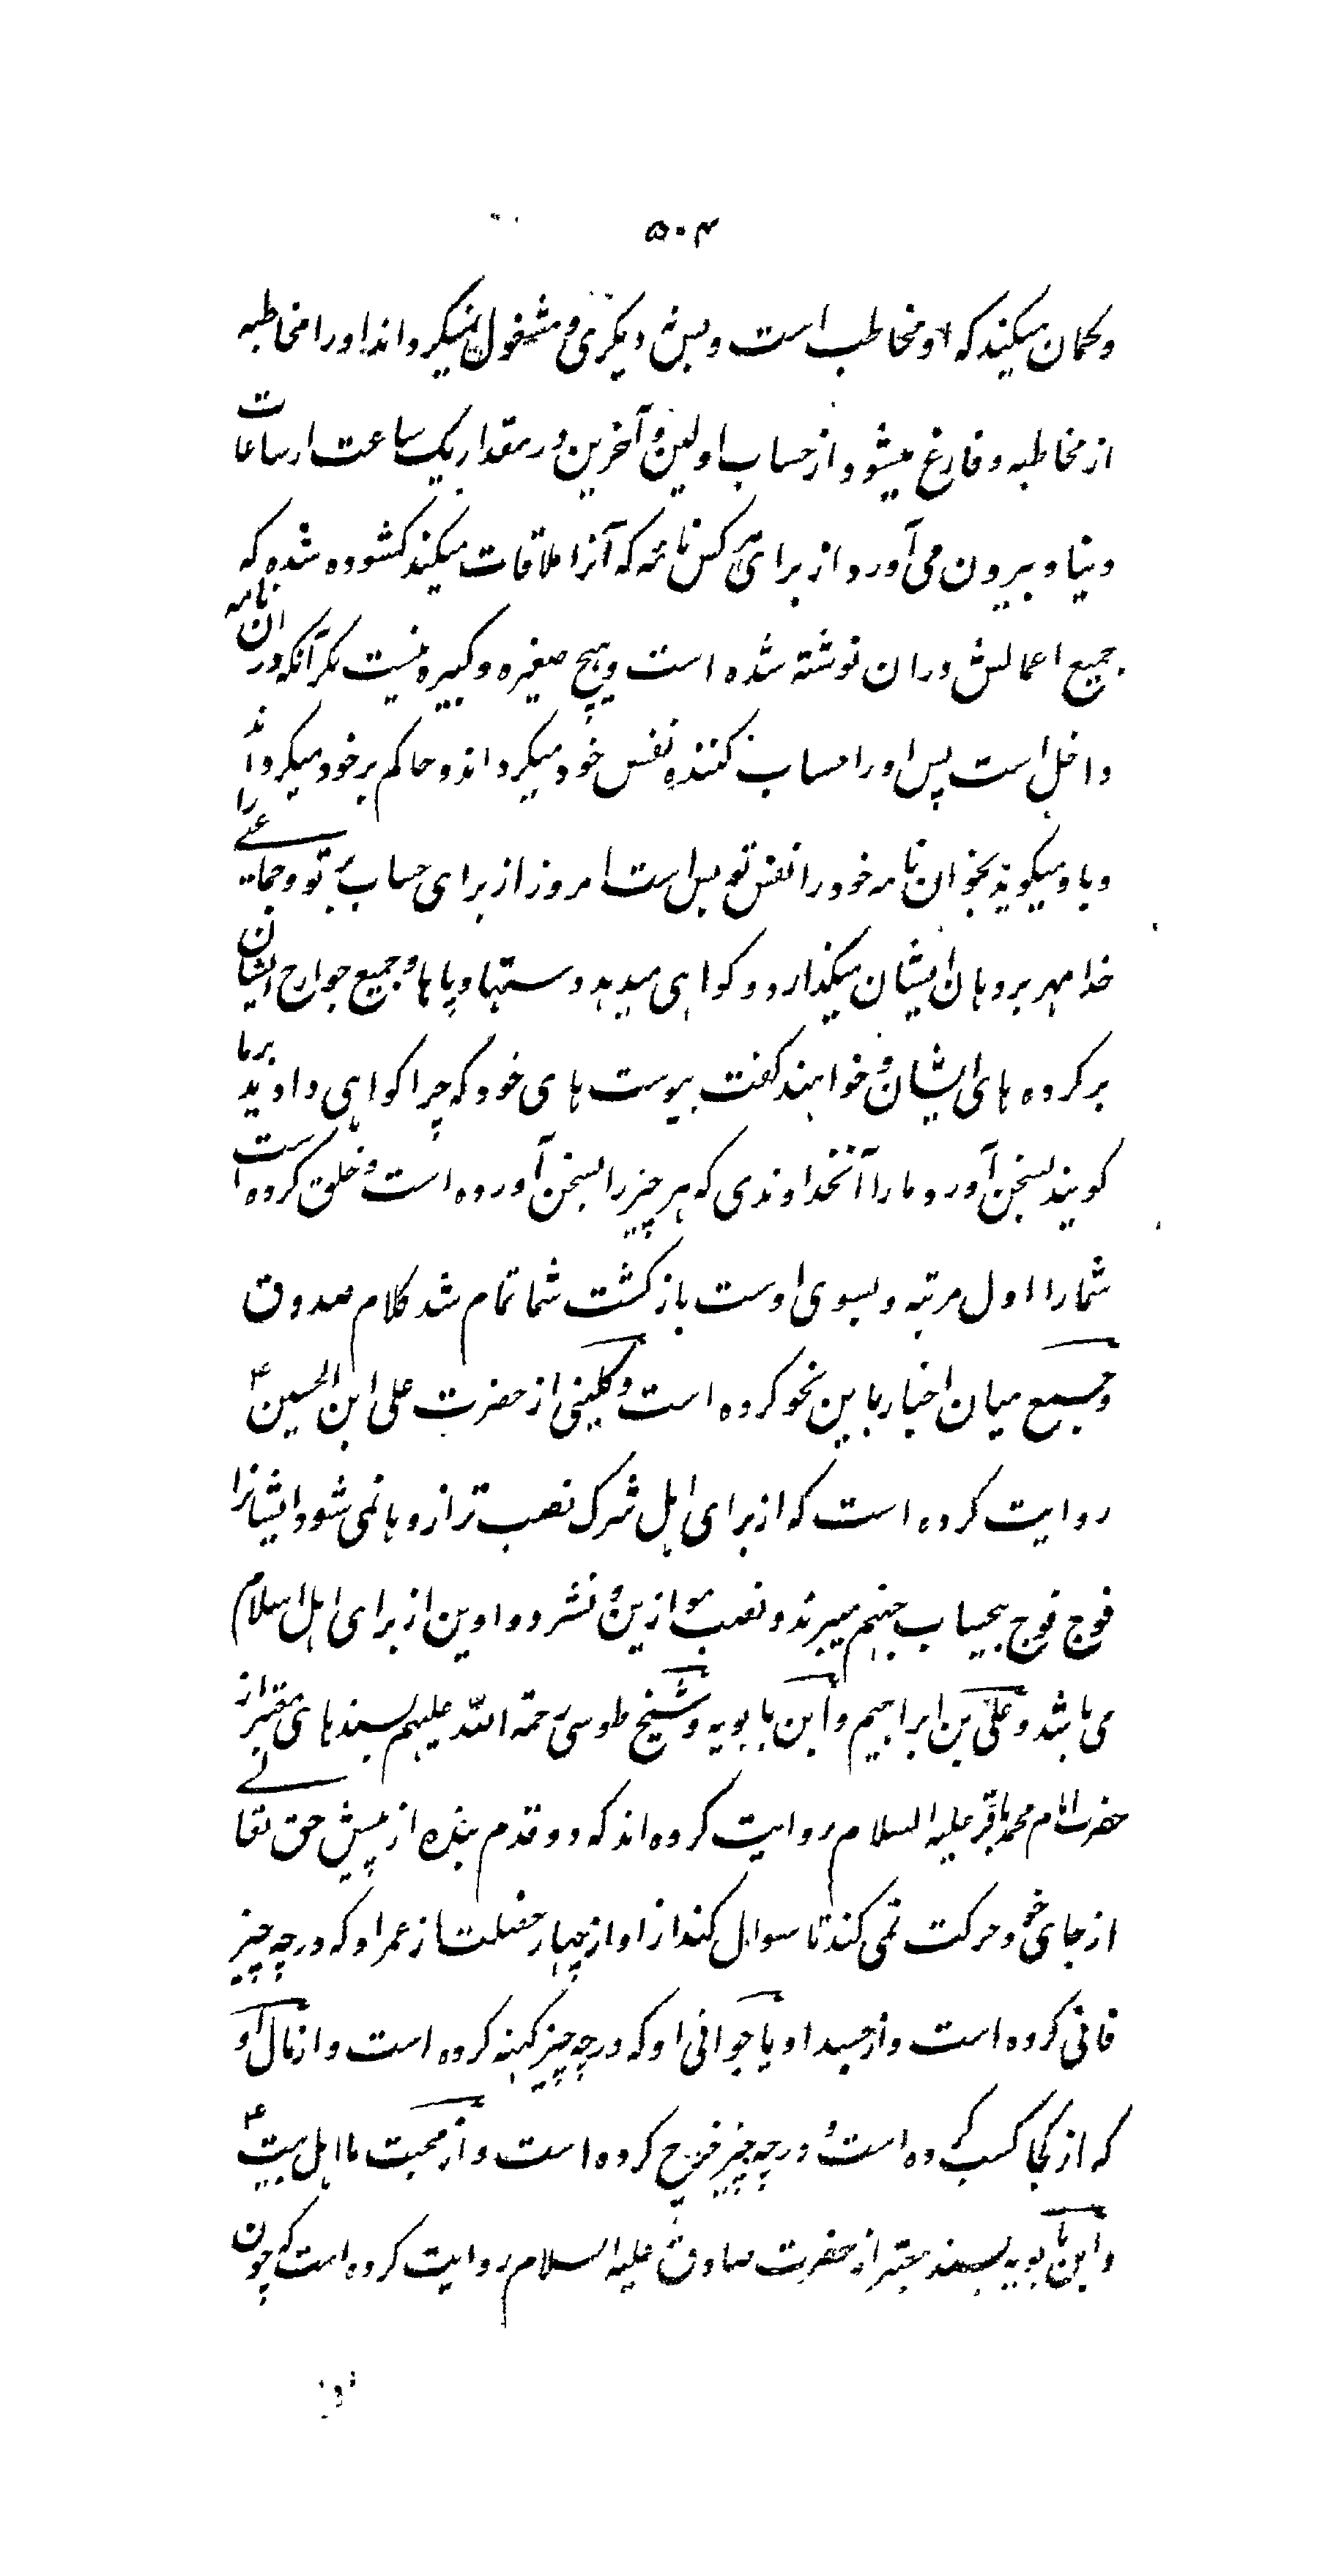 ۵۰۴
وکمان میکند که او مخاطب است وبس نه دیکری و مشغول نمیکرداند او را مخاطبه
از مخاطبه و فارغ میشود از حساب اولین و آخرین در مقدار یک ساعت از ساعات
دنیا و بیرون می آورد از برای هر کس نامۀ که آنرا ملاقات میکند کشوده شده که
جمیع اعمالش در ان نوشته شده است و هیچ صغیره و کبیره نیست مکر آنکه در ان نامه
داخل است پس او را حساب کننده نفس خود میکرداند و حاکم بر خود میکرداند
و باو میکوید بخوان نامه خود را نفس تو بس است امروز از برای حساب تو و جماعتے را
خدا مهر بر دهان ایشان میکذارد و کواهی میدهد دستها و پاها و جمیع جوارح ایشان
بر کرده های ایشان و خواهند کفت بپوست های خود که چرا کواهی دادید بر ما
کویند بسخن آورد ما را آنخداوندی که هر چیز را بسخن آورده است و خلق کرده است
شما را اول مرتبه و بسوی اوست بازکشت شما تمام شد کلام صدوق
و جمع میان اخبار باین نحو کرده است و کلینی از حضرت علی ابن الحسین ع
روایت کرده است که از برای اهل شرک نصب ترازوها نمی شود ایشانرا
فوج فوج بیحساب بجهنم میبرند و نصب موازین و نشر دواوین از برای اهل اسلام
می باشد و علی بن ابراهیم و ابن بابویه و شیخ طوسی رحمة الله علیهم بسندهای معتبر از
حضرت امام محمد باقر علیه السلام روایت کرده اند که دو قدم بنده از پیش حق تعالے
از جای خود حرکت نمی کند تا سوال کند از او از چهار خصلت از عمر او که در چه چیز
فانی کرده است و از جسد او یا جوانی او که در چه چیز کهنه کرده است و از مال او
که از کجا کسب کرده است و در چه چیز خرج کرده است و از محبت ما اهل بیت ع
و ابن بابویه بسند معتبر از حضرت صادق علیه السلام روایت کرده است که چون